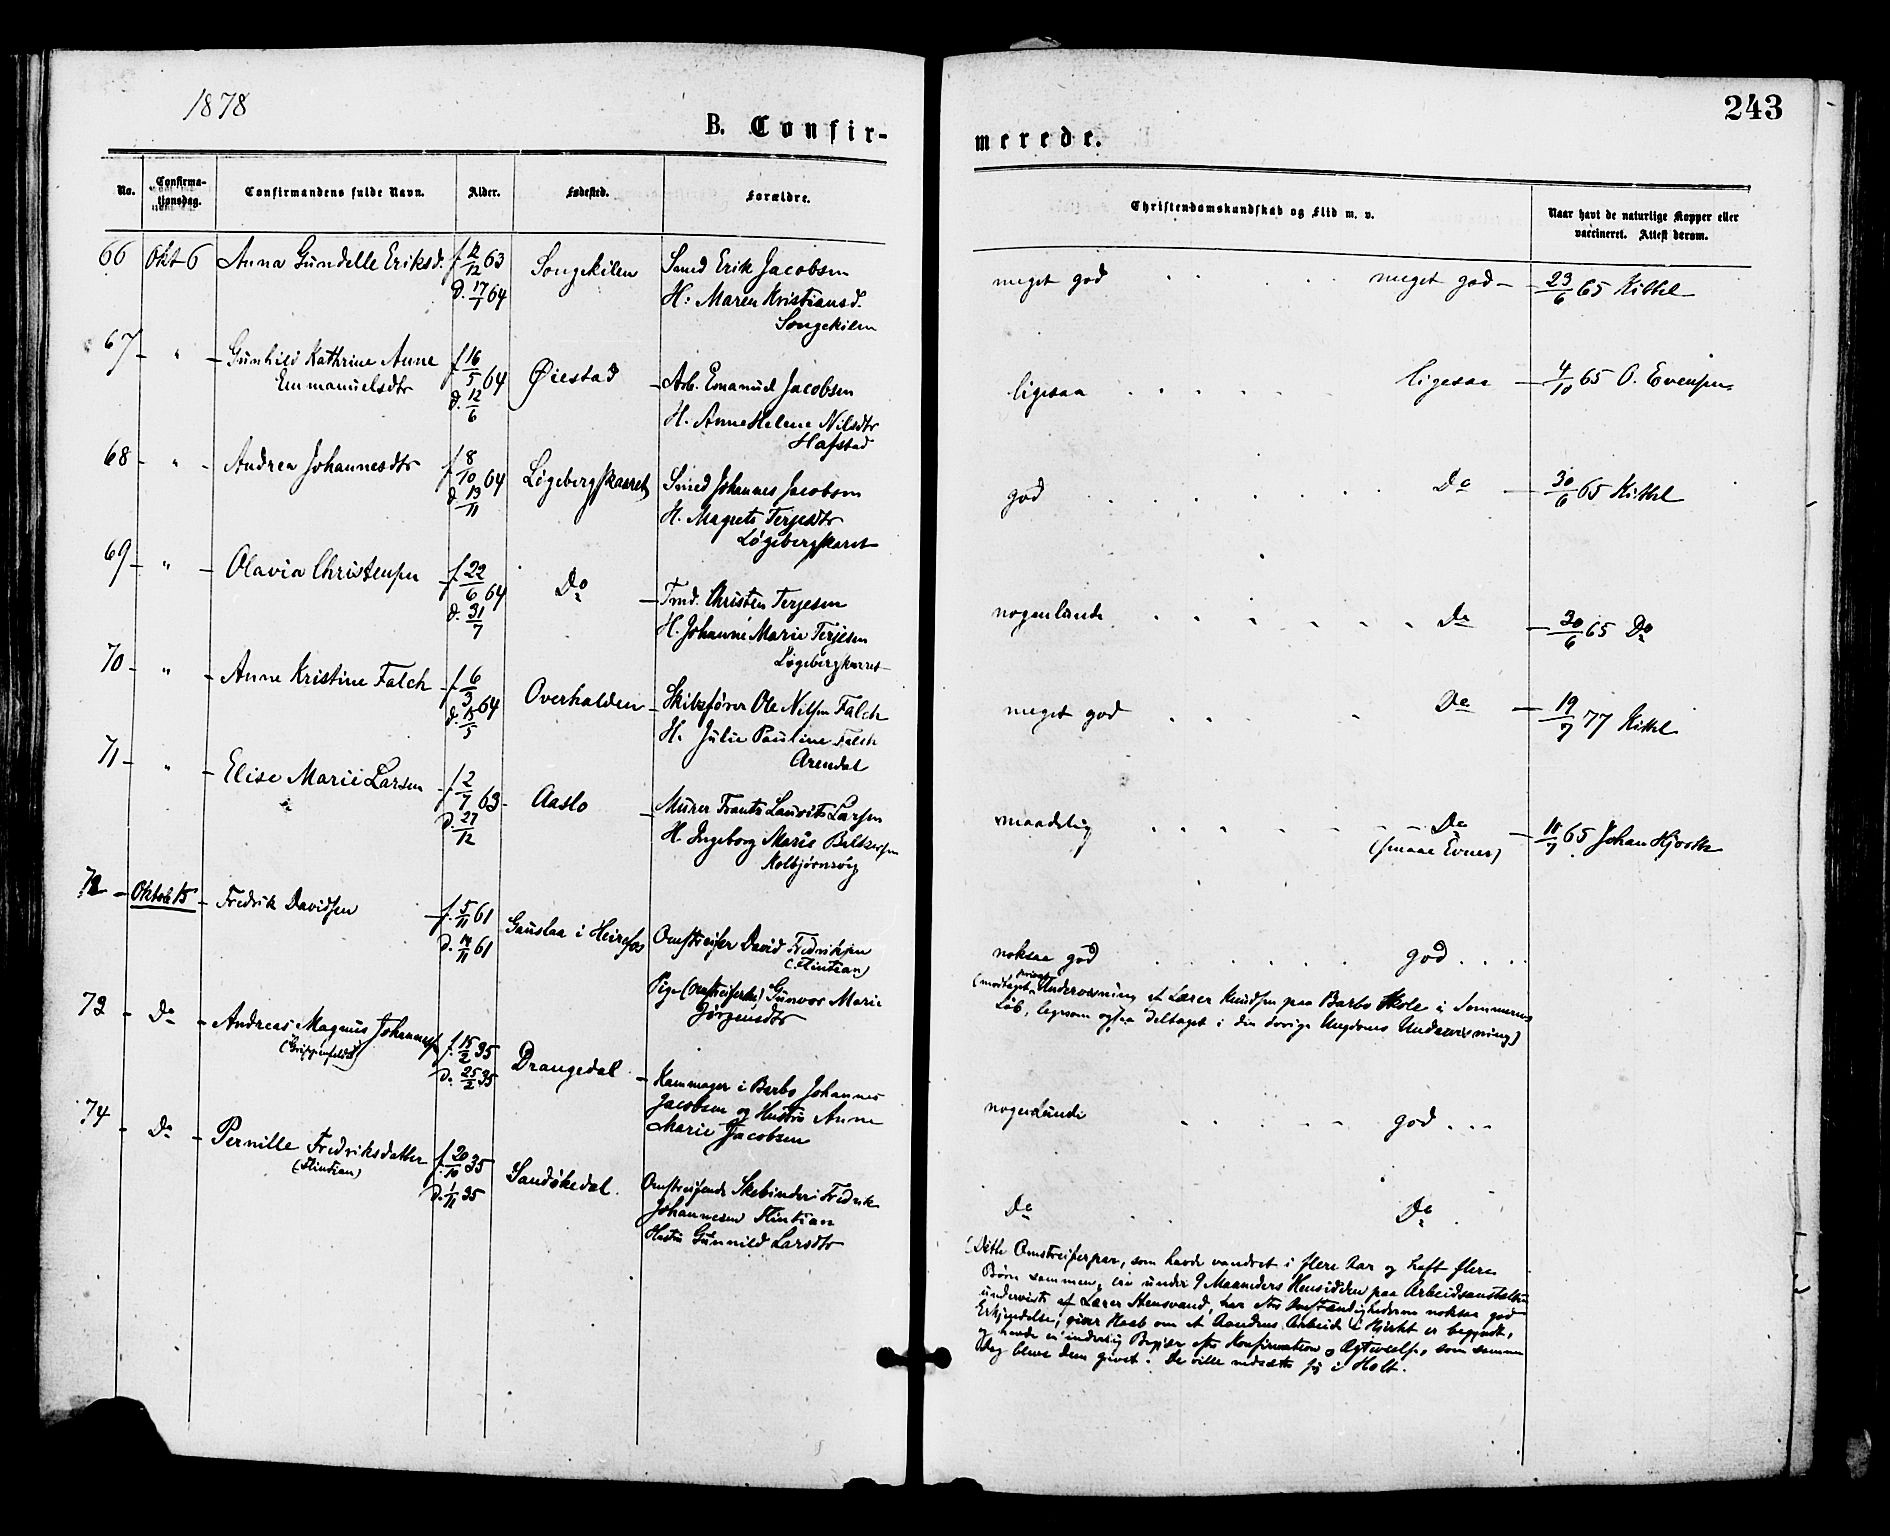 1878
243
B. Confir-
merede.
No.
Confirma-
tionsdag.
Confirmandens fulde Navn.
Alder.
Fødested.
Forældre.
Christendomskundskab og Flid m. v.
Naar havt de naturlige Kopper eller
vaccineret. Attest derom.
66 Okt 6 Anna Gundelle Eriksd. f. 12/12 63 Songekilen Smed Erik Jacobsen meget god meget god 23/6 65 Kittel
d. 17/1 64 H: Maren Kristiansd.
Songekilen
67 " Gunhild Kathrine Anne f. 16/5 64 Øiestad Arb. Emanuel Jacobsen ligesaa ligesaa 4/10 65 O. Evensen
Emmanuelsdtr d. 12/6 H. Anne Helene Nilsdtr
Hafstad
68 " Andrea Johannesdtr f. 8/10 64 Løgebergskaaret Smed Johannes Jacobsen god Do 30/6 65 Kittel
d. 13/11 H. Magrete Terjesdtr
Løgebergskaret
69 " Olavia Christensen f. 22/6 64 Do Tmd. Christen Terjesen nogenlunde Do 30/6 65 Do
d. 31/7 H. Johanne Marie Terjesen
Løgebergskaret
70 " Anne Kristine Falch f. 6/3 64 Overhalden Skibsfører Ole Nilsen Falch meget god Do 19/7 77 Kittel
d. 15/5 H. Julie Pauline Falch
Arendal
71 " Elise Marie Larsen f. 2/7 63 Aaslo Murer Frants Lauvits Larsen maadelig Do 11/7 65 Johan Hjorth
d. 27/12 H. Ingeborg Marie Beltzersen (smaae Evner)
Kolbjørnsvig
72 Oktob 15 Fredrik Davidsen f. 5/11 61 Gauslaa i Heirefos Omstreifer David Fredriksen noksaa god god
d. 14/11 61 (Flintian)
Pige (Omstreiferske) Gunvor Marie
Jørgensdtr
(modtaget privat Undervisning af Lærer Knudsen paa Barbo Skole i Sommerens
Løb, ligesom ogsaa deltaget i den øvrige Ungdoms Undervisning)
73 Do Andreas Magnus Johannes f. 15/2 35 Drangedal Kammager i Barbo Johannes nogenlunde god
d. 25/2 35 Jacobsen og Hustru Anne
Marie Jacobsen
74 Do Pernille Fredriksdatter f. 20/10 35 Sandøkedal. Omstreifende Skebinder Fredrik Do Do
(Flintian) d. 1/11 35 Johannesen Flintian
Hustru Gunnild Larsdtr
(Dette Omstreiferpar, som havde vandret i flere Aar og haft flere
Børn sammen, ere under 9 Maaneders Hensidden paa Arbeidsanstalten
underviste af Lærer Stensvand, har efter Omstændighederne noksaa god
Erkjendelse, giver Haab om at Aandens Arbeide i Hjertet er begyndt,
og havde en inderlig Begjær efter Konfirmation og Ægtevielse, som samme
Dag bleve dem givet. De ville nedsætte sig i Holt.